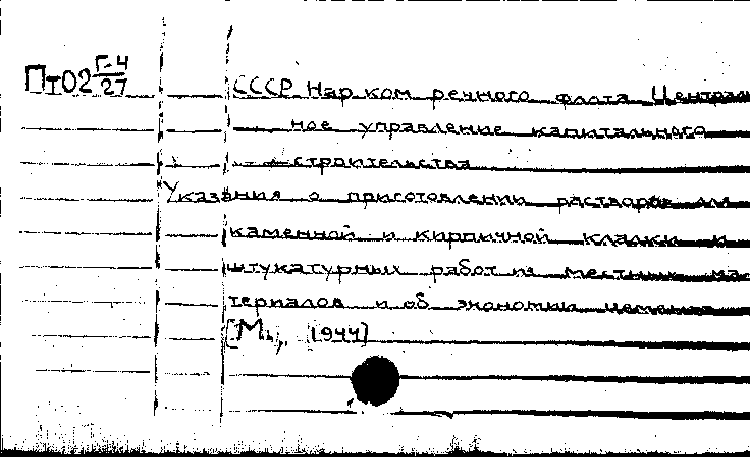 Пт02 Г-4/27
СССР Нар ком речного флота Централь
ное управление капитального
строительства
Указания о приготовлении растворов для
каменной и кирпичной кладки и
штукатурных работ из местных ма
териалов и об экономии цемента
[М., 1944]